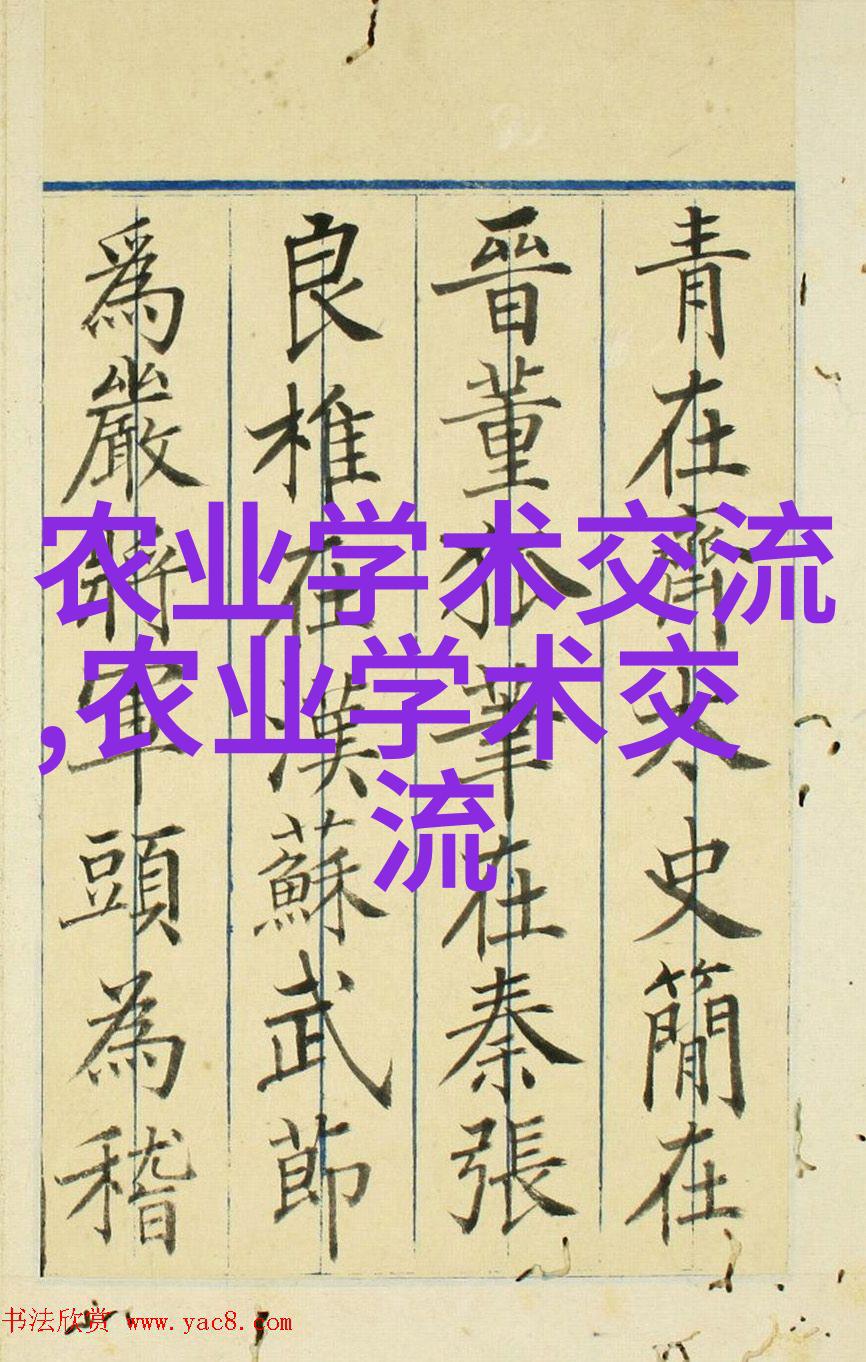 青在齊太史簡在
晉董狐筆在秦張
良椎在漢蘇武節
爲嚴將軍頭為稽
农业学术交流
,农业学术交
流
书法欣赏 www.yac8.com